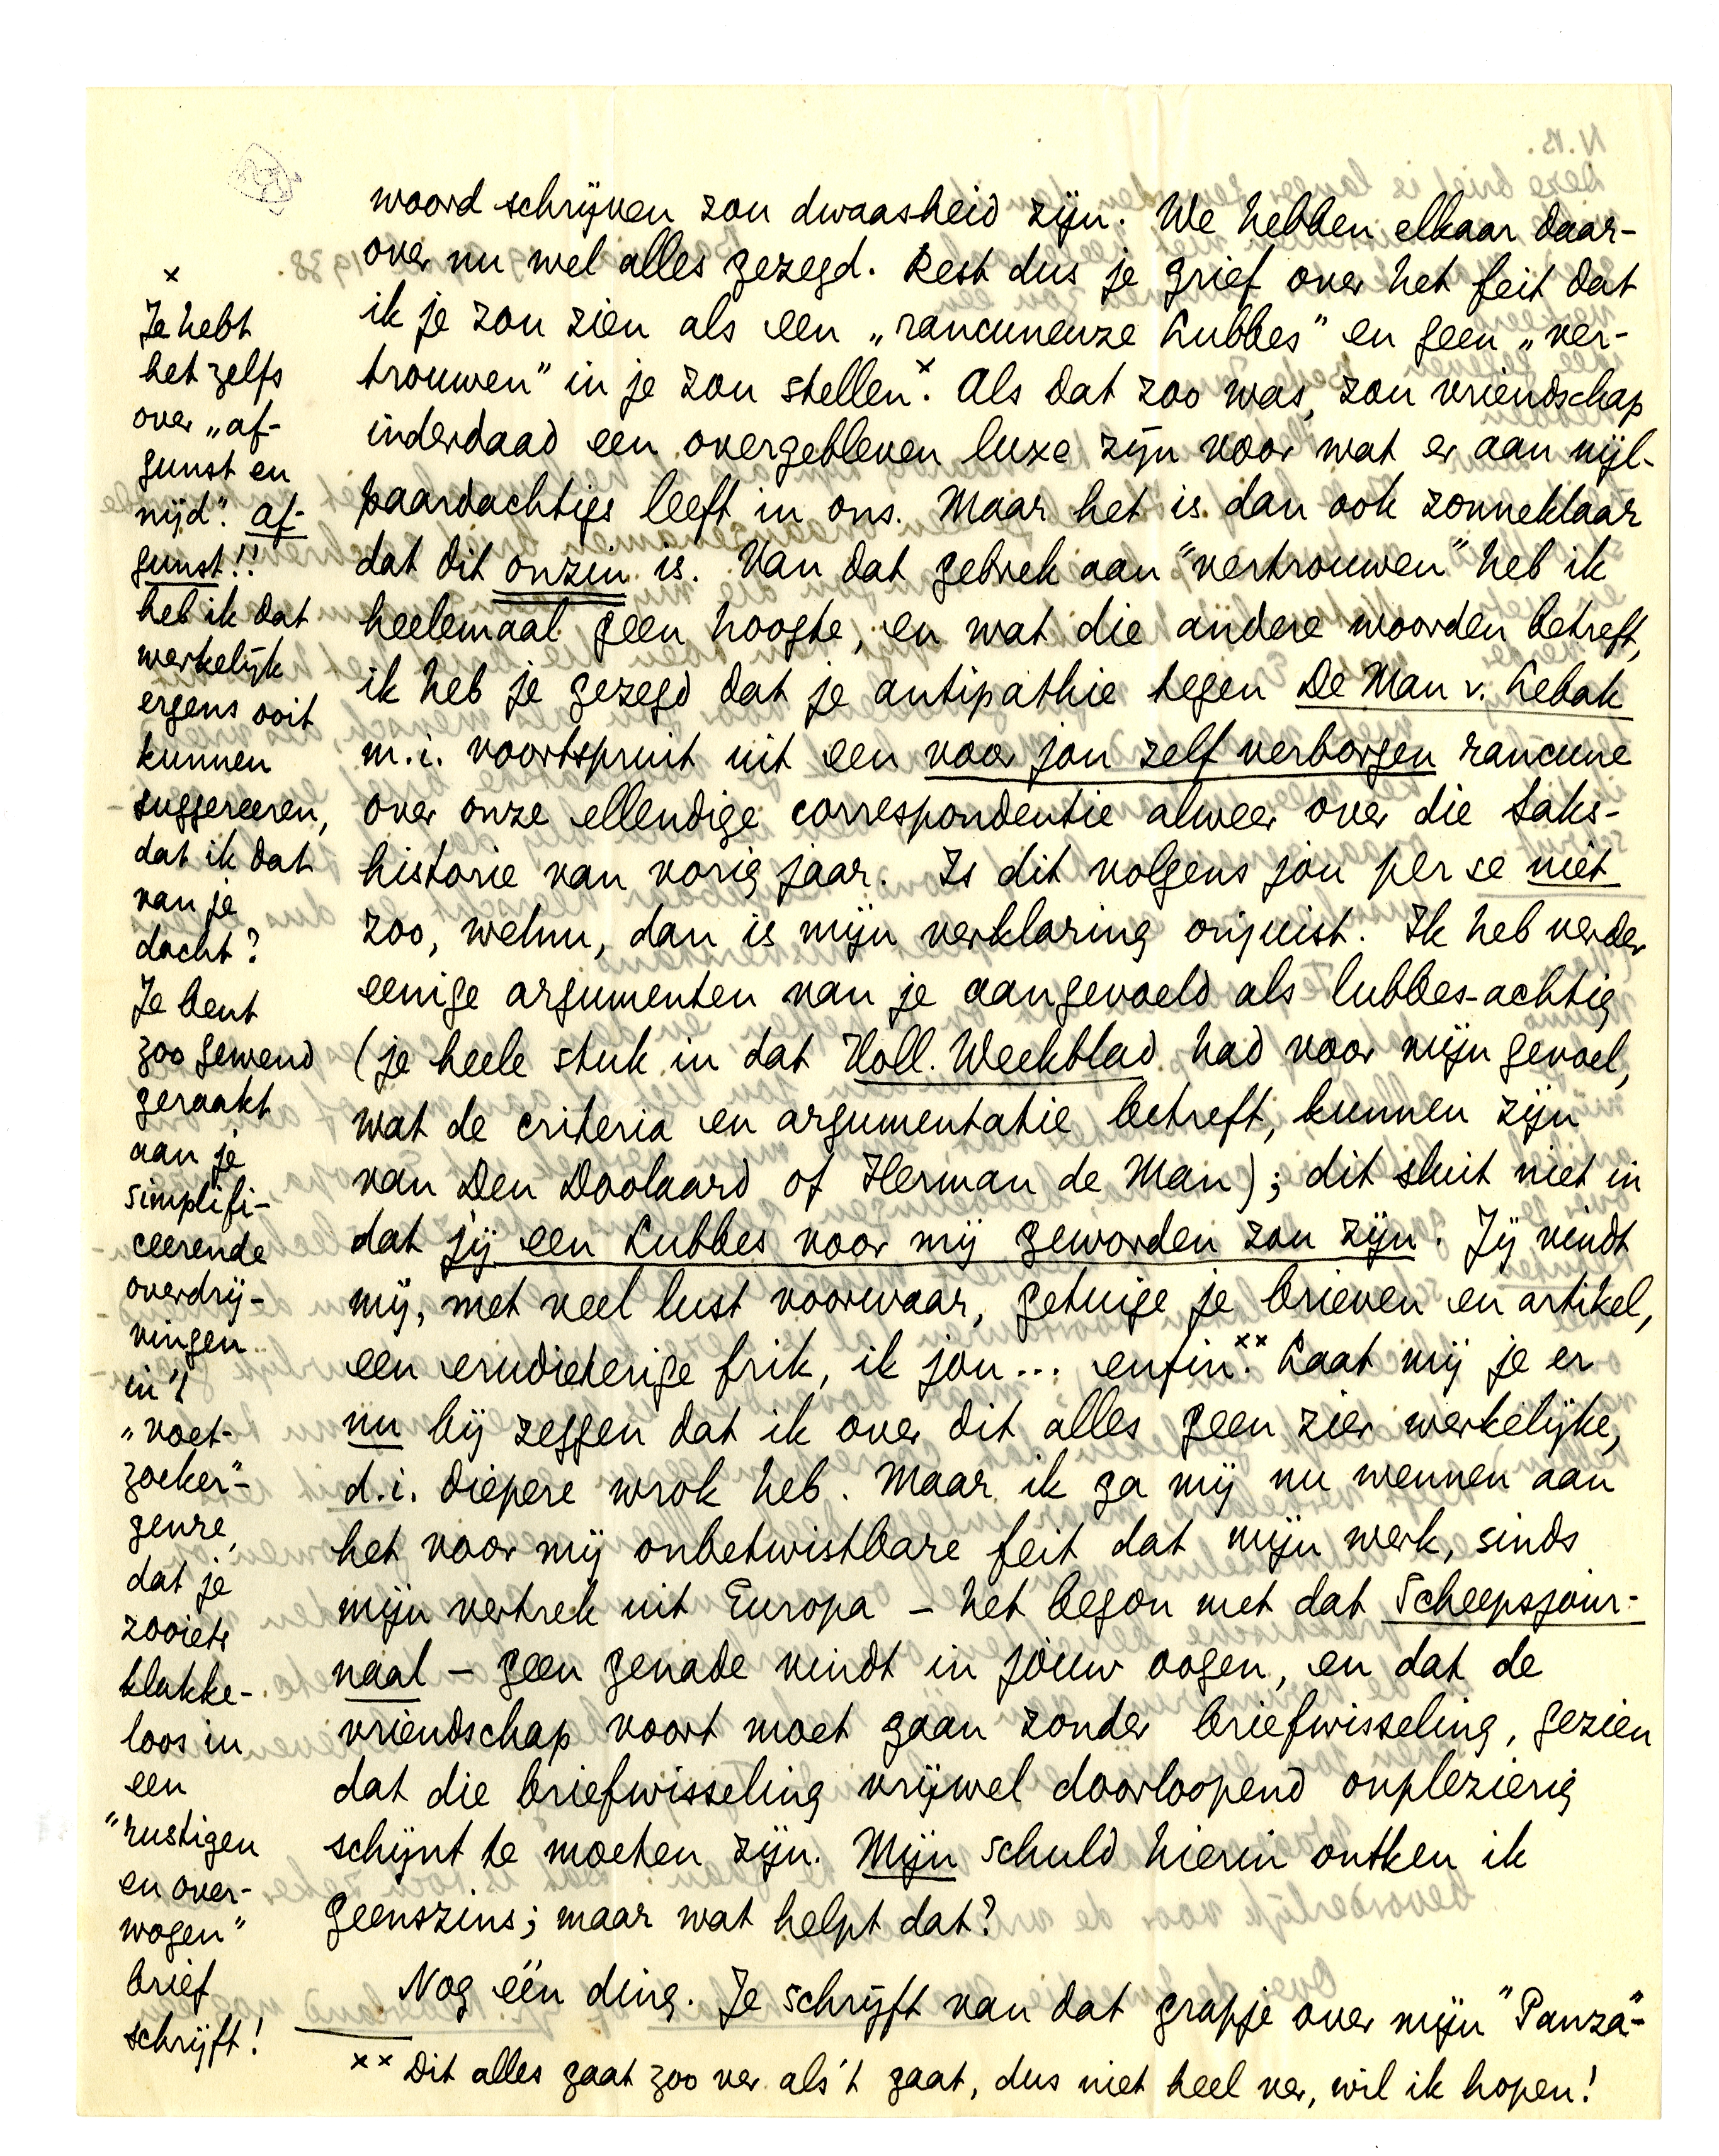 woord schrijven zou dwaasheid zijn. We hebben elkaar daar-
over nu wel alles gezegd. Rest dus je grief over het feit dat
ik je zou zien als een „rancuneuze Lubbes” en geen „ver-
trouwen” in je zou stellen.× Als dat zoo was, zou vriendschap
inderdaad een overgebleven luxe zijn voor wat er aan nijl-
paardachtigs leeft in ons. Maar het is dan ook zonneklaar
dat dit onzin is. Van dat gebrek aan “vertrouwen” heb ik
heelemaal geen hoogte, en wat die andere woorden betreft,
ik heb je gezegd dat je antipathie tegen De Man v. Lebak
m.i. voortspruit uit een voor jou zelf verborgen rancune
over onze ellendige correspondentie alweer over die Saks-
historie van vorig jaar. Is dit volgens jou per se niet
zoo, welnu, dan is mijn verklaring onjuist. Ik heb verder
eenige argumenten van je aangevoeld als lubbes-achtig
(je heele stuk in dat Holl. Weekblad had voor mijn gevoel,
wat de criteria en argumentatie betreft, kunnen zijn
van Den Doolaard of Herman de Man); dit sluit niet in
dat jij een Lubbes voor mij geworden zou zijn. Jij vindt
mij, met veel lust voorwaar, getuige je brieven en artikel,
een erudieterige frik, ik jou... enfin.×× Laat mij je er
nu bij zeggen dat ik over dit alles geen zier werkelijke,
d.i. diepere wrok heb. Maar ik ga mij nu wennen aan
het voor mij onbetwistbare feit dat mijn werk, sinds
mijn vertrek uit Europa – het begon met dat Scheepsjour-
naal – geen genade vindt in jouw oogen, en dat de
vriendschap voort moet gaan zonder briefwisseling, gezien
dat die briefwisseling vrijwel doorloopend onplezierig
schijnt te moeten zijn. Mijn schuld hierin ontken ik
geenszins; maar wat helpt dat?
Nog één ding. Je schrijft van dat grapje over mijn “Panza”-
×
Je hebt
het zelfs
over „af-
gunst en
nijd”. Af-
gunst!!
heb ik dat
werkelijk
ergens ooit
kunnen
suggereeren,
dat ik dat
van je
dacht?
Je bent
zoo gewend
geraakt
aan je
simplifi-
ceerende
overdrij-
vingen
in 't
„voet-
zoeker”-
genre,
dat je
zooiets
klakke-
loos in
een
“rustigen
en over-
wogen”
brief
schrijft!
×× Dit alles gaat zoo ver als 't gaat, dus niet heel ver, wil ik hopen!